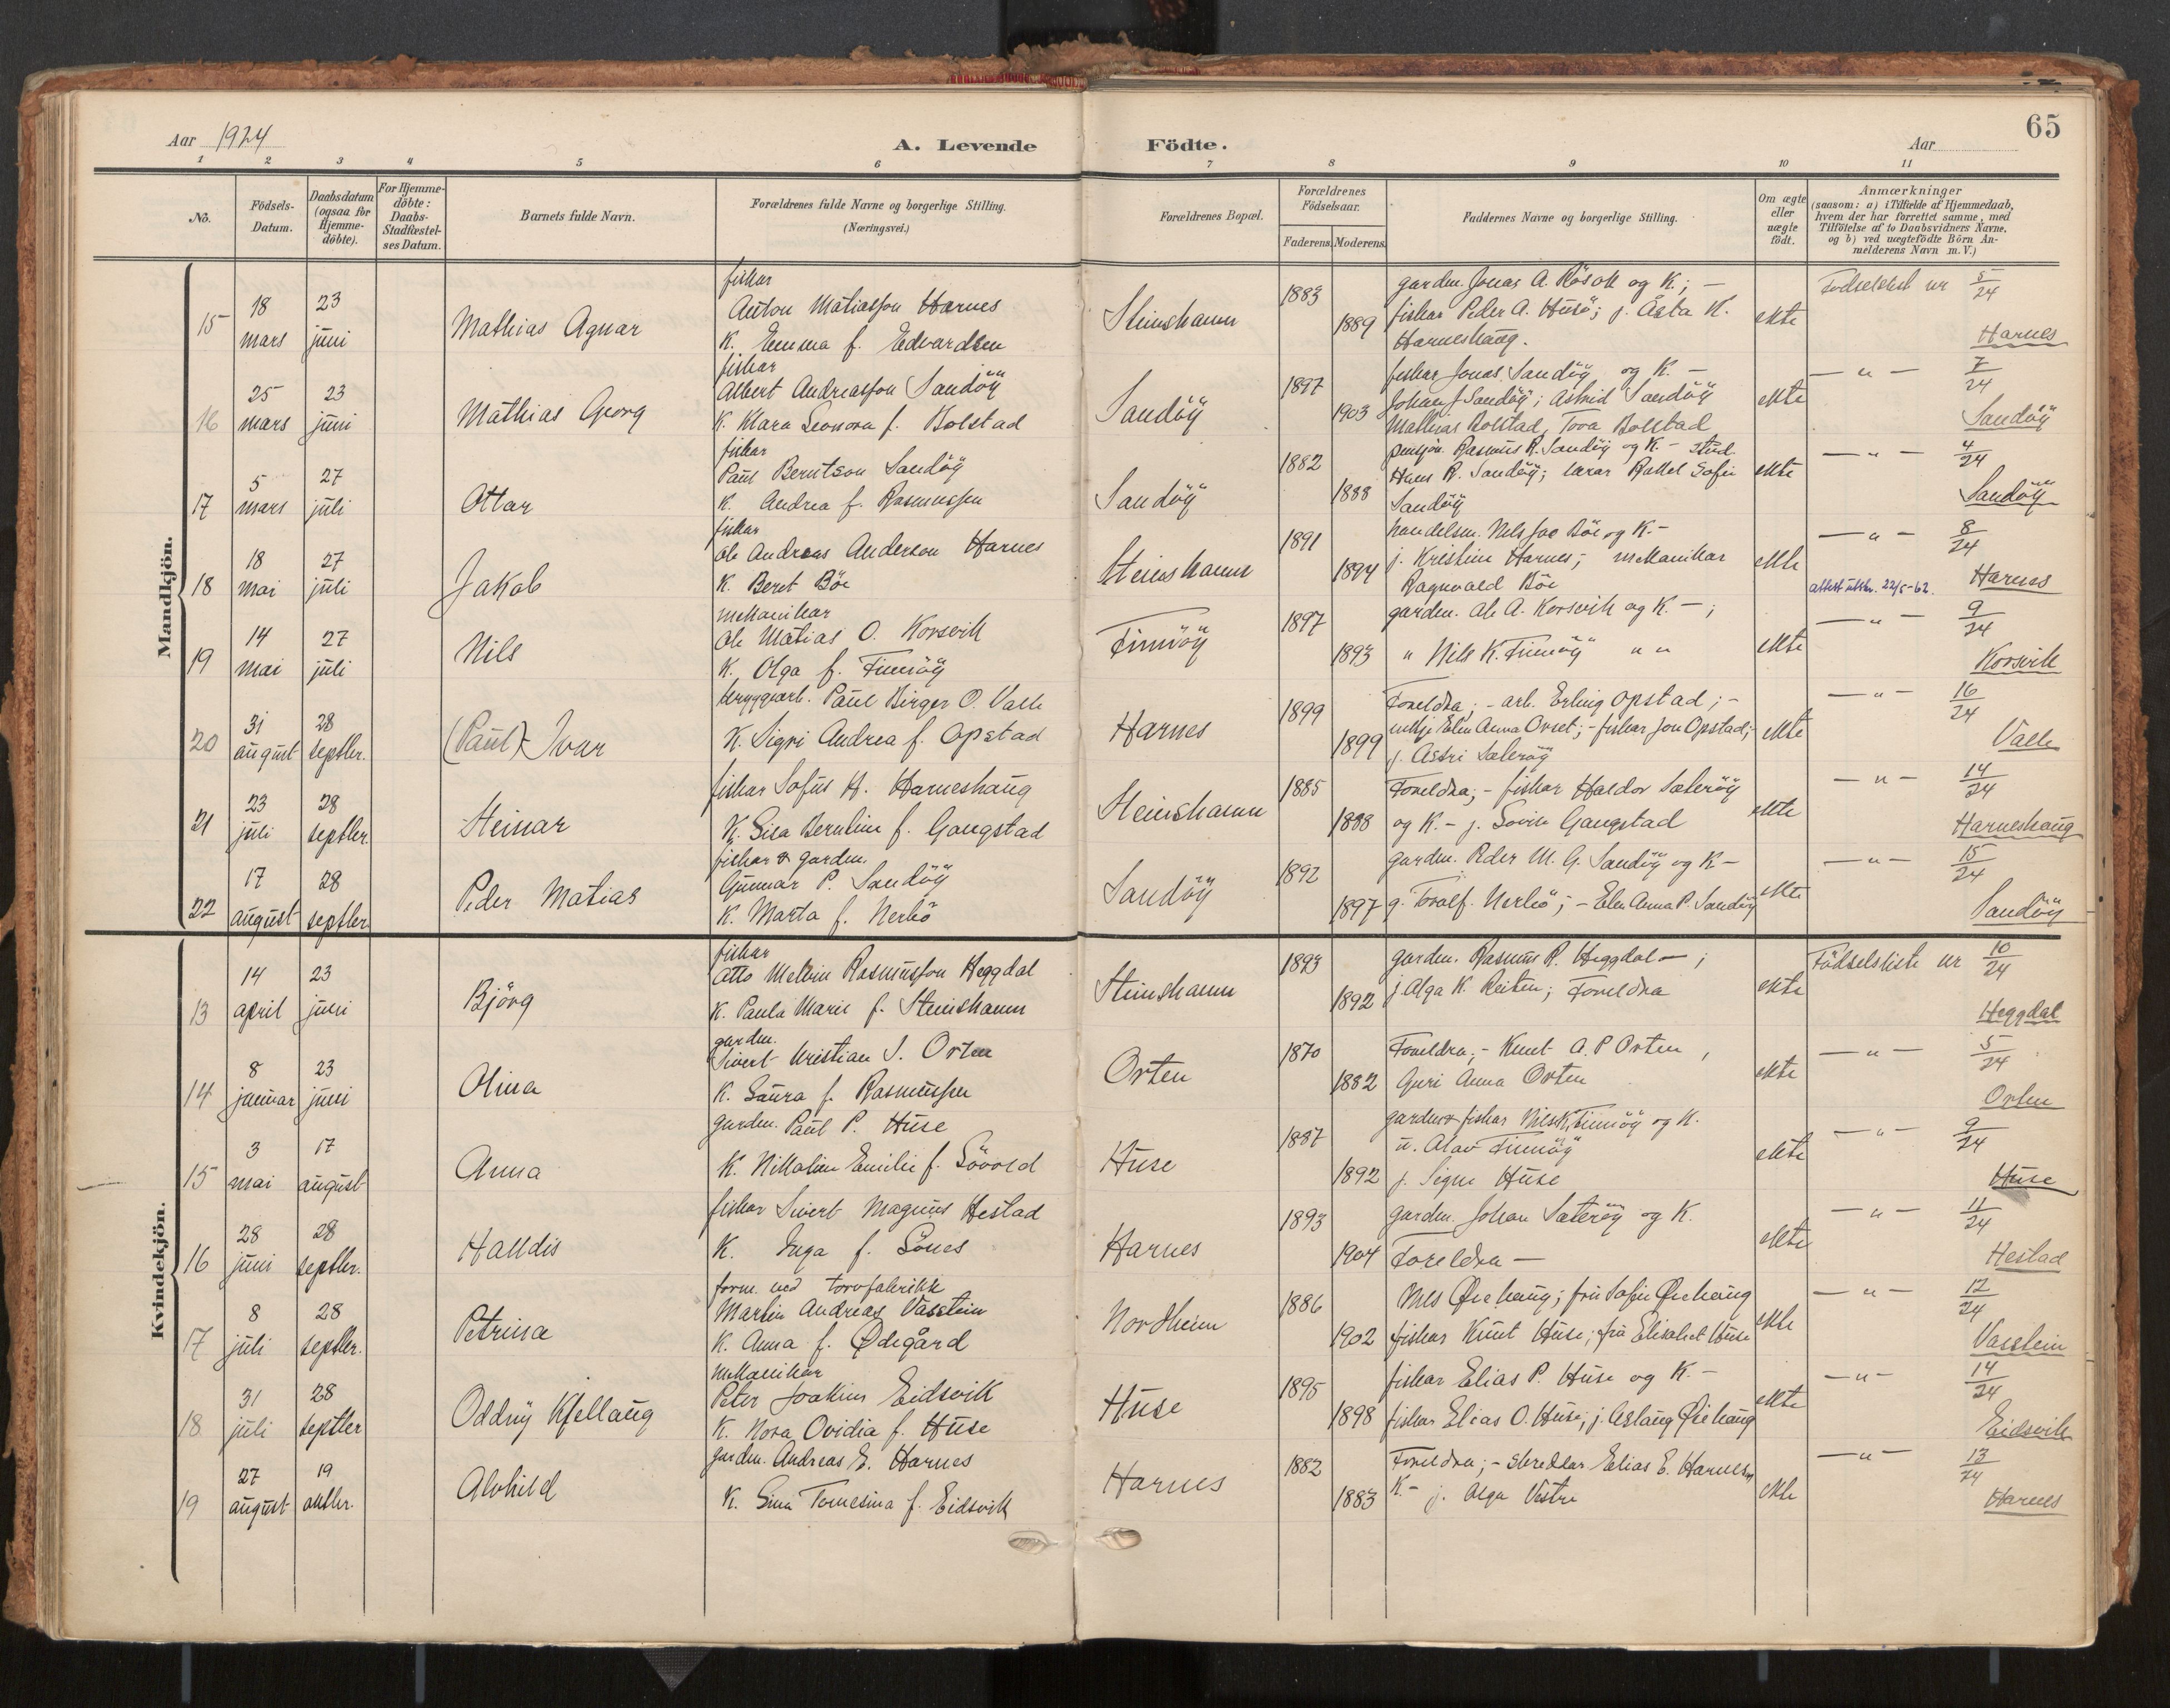 65
Aar 1924
A. Levende Födte.
Aar
1 2 3 4 5 6 7 8 9 10 11
No.
Födsels-Datum.
Daabsdatum (ogsaa for Hjemme-döbte).
For Hjemme-döbte: Daabs-Stadfæstel-ses Datum.
Barnets fulde Navn.
Forældrenes fulde Navne og borgerlige Stilling. (Næringsvei.)
Forældrenes Bopæl.
Forældrenes Födselsaar.
Faderens. Moderens.
Faddernes Navne og borgerlige Stilling.
Om ægte eller uægte födt.
Anmærkninger
(saasom: a) i Tilfælde af Hjemmedaab, hvem der har forrettet samme, med Tilföielse af to Daabsvidners Navne, og b) ved uægtefödte Börn Anmelderens Navn m.V.)
Mandkjön.
15 18 mars 23 juni Mathias Agnar
fiskar
Anton Matiasson Harnes
K. Emma f. Edvardsen
Steinshamn 1883 1889
garden. Jonas A. Rösok og K; —
fiskar Peder A. Husö; j. Åsta K.
Harneshaug.
ekte Fodselslist nr 5/24 Harnes
16 25 mars 23 juni Mathias Georg
fiskar
Albert Andreasson Sandöÿ
K. Klara Leonora f. Bolstad
Sandöÿ 1897 1903
fiskar Jonas Sandöÿ og K. —
Johan J Sandöÿ; Astrid Sandöÿ
Mathias Bolstad, Tora Bolstad
ekte — " — 7/24 Sandöÿ
17 5 mars 27 juli Ottar
fiskar
Paul Berntson Sandöÿ
K. Andrea f. Rasmussen
Sandöÿ 1882 1888
pensjon. Rasmus R. Sandöÿ og K. — stud.
Hans R. Sandöÿ; lærar Rakel Sofie
Sandöÿ
ekte — " — 4/24 Sandöÿ
18 18 mai 27 juli Jakob
fiskar
Ole Andreas Anderson Harnes
K. Beret Böe
Steinshamn 1891 1894
handelsm. Nils Jvo Böe og K —
j. Kristine Harnes; mekanikar
Ragnvald Böe
ekte — " — 8/24 Harnes
attest utskr. 22/5-62.
19 14 mai 27 juli Nils
mekanikar
Ole Matias O. Korsvik
K. Olga f. Finnöÿ
Finnöÿ 1897 1893
garden. Ole A. Korsvik og K. — ;
" Nils K. Finnöÿ " "
ekte — " — 9/24 Korsvik
20 31 august 28 septbr. (Paul) Ivar
bryggjearb. Paul Birger O. Valle
K. Sigri Andrea f. Opstad
Harnes 1899 1899
Foreldra; — arb. Erling Opstad; —
enkje Elen Anna Orset; — fiskar Jon Opstad; —
j. Astri Sæteröÿ
ekte — " — 16/24 Valle
21 23 juli 28 septbr. Steinar
fiskar Sofus H. Harneshaug
K. Sisa Berntine f. Gangstad
Steinshamn 1885 1888
Foreldra; — fiskar Haldor Sæteröÿ
og K. — j. Lovise Gangstad
ekte — " — 14/24 Harneshaug
22 17 august 28 septbr. Peder Matias
fiskar & garden.
Gunnar P. Sandöÿ
K. Marta f. Nerbö
Sandöÿ 1892 1897
garden. Peder M. G. Sandöÿ og K —
g. Torolf. Nerbö; — Elen Anna P. Sandöÿ
ekte — " — 15/24 Sandöÿ
Kvindekjön.
13 14 april 23 juni Björg
fiskar
Otto Melvin Rasmusson Heggdal
K. Paula Marie f. Steinshamn
Steinshamn 1893 1892
garden. Rasmus R. Heggdal — ;
j. Olga K. Reiten; Foreldra
ekte Födselsliste nr 10/24 Heggdal
14 8 januar 23 juni Olina
garden.
Sivert Kristian S. Orten
K. Laura f. Rasmussen
Orten 1870 1882
Foreldra; — Knut A. P Orten,
Guri Anna Orten
ekte — " — 5/24 Orten
15 3 mai 17 august Anna
garden. Paul P. Huse
K. Nikoline Emilie f. Lövold
Huse 1887 1892
garden & fiskar Nils K. Finnöÿ og K.
u. Olav Finnöÿ
j. Signe Huse
ekte — " — 9/24 Huse
16 28 juni 28 septbr. Halldis
fiskar Sivert Magnus Hestad
K. Inga f. Sönes
Harnes 1893 1904
garden. Johan Sæteröÿ og K.
Foreldra —
ekte — " — 11/24 Hestad
17 8 juli 28 septbr. Petrina
form. ved torvfabrikk
Martin Andreas Vasstein
K. Anna f. Ødegård
Nordheim 1886 1902
Nils Øiehaug; fru Sofie Øiehaug
fiskar Knut Huse; fru Elisabet Huse
ekte — " — 12/24 Vasstein
18 31 juli 28 septbr Oddnÿ Kjellaug
mekanikar
Peter Joakim Eidsvik
K. Nora Ovidia f. Huse
Huse 1895 1898
fiskar Elias P. Huse og K. —
fiskar Elias O. Huse; j. Aslaug Øiehaug
ekte — " — 14/24 Eidsvik
19 27 august 19 oktbr. Alvhild
garden. Andreas E. Harnes
K. Sina Tomesina f. Eidsvik
Harnes 1882 1883
Foreldra; — skreddar Elias E. Harnes m
K — j. Olga Vestre
ekte — " — 13/24 Harnes